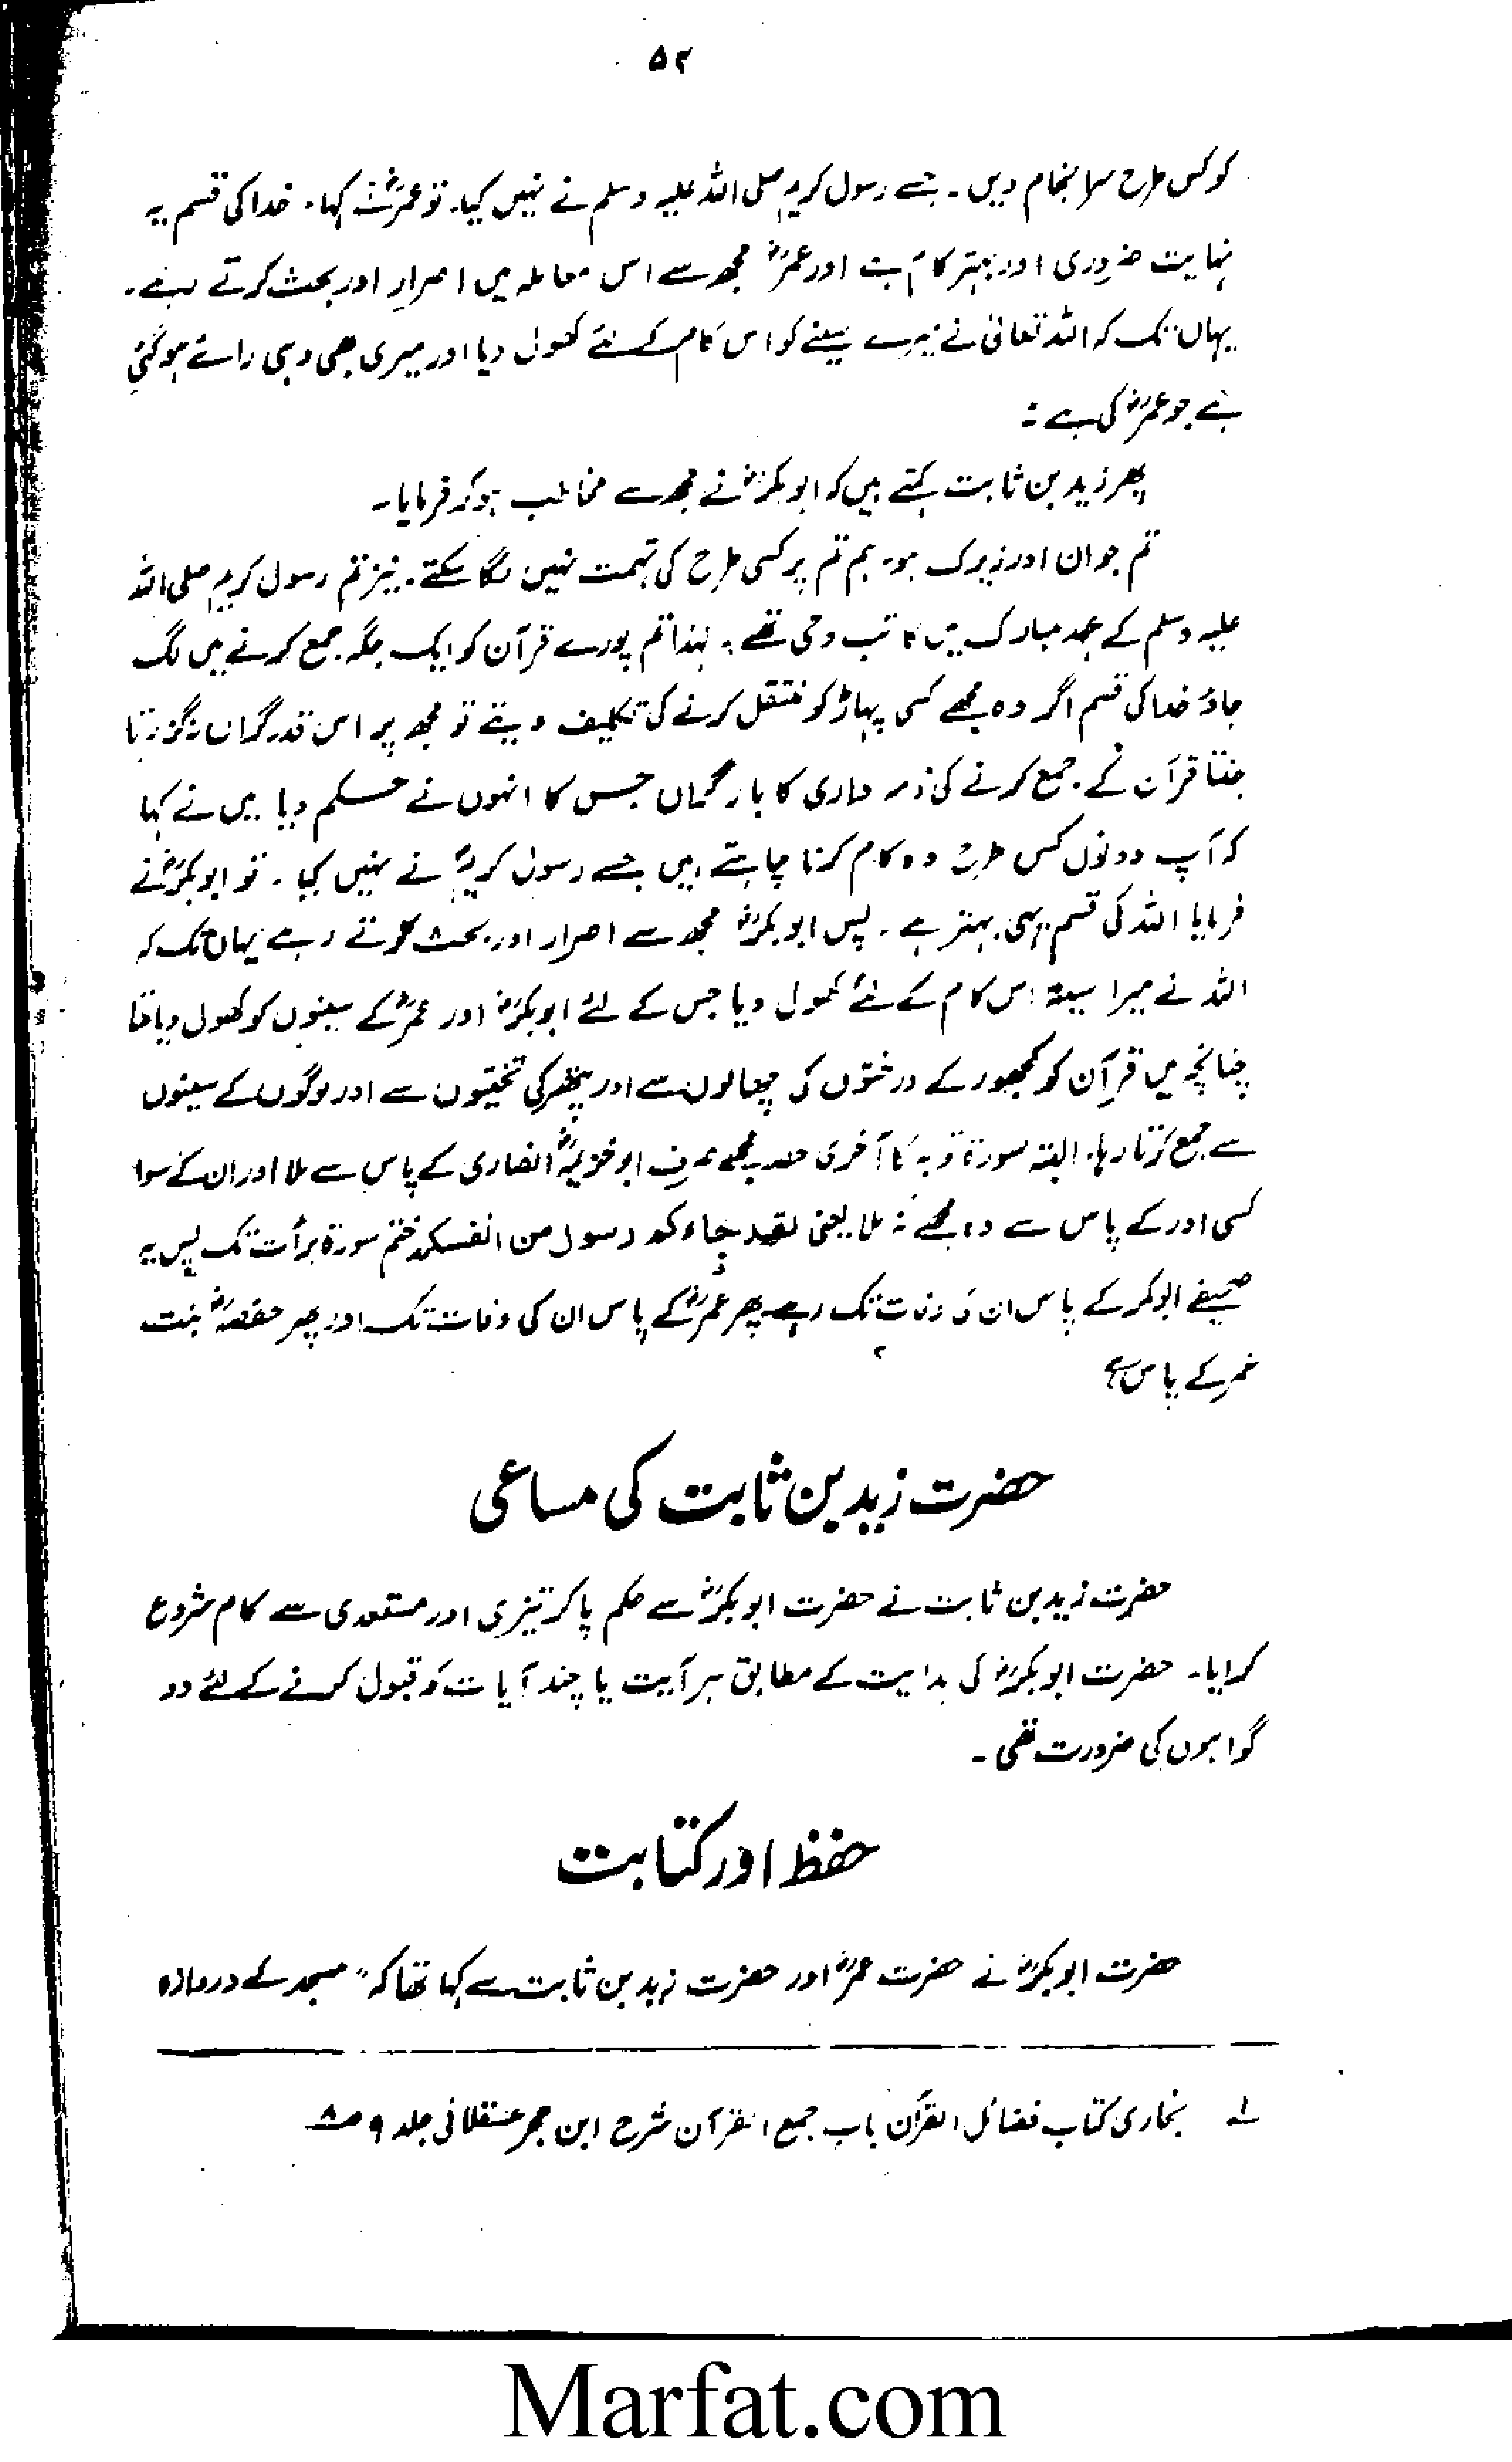 ۵۲
کو کس طرح سرانجام دیں۔ جسے رسول کریم صلی اللہ علیہ وسلم نے نہیں کیا۔ تو عمرؓ نے کہا۔ خدا کی قسم یہ
نہایت ضروری اور بہتر کام ہے اور عمرؓ مجھ سے اس معاملہ میں اصرار اور بحث کرتے رہے۔
یہاں تک کہ اللہ تعالیٰ نے میرے سینے کو اس کام کے لئے کھول دیا اور میری بھی وہی رائے ہو گئی
ہے جو عمرؓ کی ہے :
پھر زید بن ثابت کہتے ہیں کہ ابوبکرؓ نے مجھ سے مخاطب ہو کر فرمایا۔
تم جوان اور زیرک ہو۔ ہم تم پر کسی طرح کی تہمت نہیں لگا سکتے۔ نیز تم رسول کریم صلی اللہ
علیہ وسلم کے عہد مبارک میں کاتب وحی تھے۔ لہٰذا تم پورے قرآن کو ایک جگہ جمع کرنے میں لگ
جاؤ خدا کی قسم اگر وہ مجھے کسی پہاڑ کو منتقل کرنے کی تکلیف دیتے تو مجھ پر اس قدر گراں نہ گزرتا
جتنا قرآن کے جمع کرنے کی ذمہ داری کا بار گراں جس کا انہوں نے حکم دیا میں نے کہا
کہ آپ دونوں کس طرح وہ کام کرنا چاہتے ہیں جسے رسول کریمؐ نے نہیں کیا۔ تو ابوبکرؓ نے
فرمایا اللہ کی قسم یہی بہتر ہے۔ پس ابوبکرؓ مجھ سے اصرار اور بحث کرتے رہے یہاں تک کہ
اللہ نے میرا سینہ اس کام کے لئے کھول دیا جس کے لئے ابوبکرؓ اور عمرؓ کے سینوں کو کھول دیا تھا
چنانچہ میں قرآن کو کھجور کے درختوں کی چھالوں سے اور پتھر کی تختیوں سے اور لوگوں کے سینوں
سے جمع کرتا رہا۔ البتہ سورۃ توبہ کا آخری حصہ مجھے صرف ابو خزیمہؓ انصاری کے پاس سے ملا اور ان کے سوا
کسی اور کے پاس سے وہ مجھے نہ ملا یعنی لقد جاءکم رسول من انفسکم ختم سورۃ برأت تک پس یہ
صحیفے ابوبکر کے پاس ان کی وفات تک رہے پھر عمرؓ کے پاس ان کی وفات تک اور پھر حفصہؓ بنت
عمر کے پاس
حضرت زید بن ثابت کی مساعی
حضرت زید بن ثابت نے حضرت ابوبکرؓ سے حکم پا کر تیزی اور مستعدی سے کام شروع
کرایا۔ حضرت ابوبکرؓ کی ہدایت کے مطابق ہر آیت یا چند آیات کو قبول کرنے کے لئے دو
گواہوں کی ضرورت تھی۔
حفظ اور کتابت
حضرت ابوبکرؓ نے حضرت عمرؓ اور حضرت زید بن ثابت سے کہا تھا کہ "مسجد کے دروازہ
لے بخاری کتاب فضائل القرآن باب جمع القرآن شرح ابن حجر عسقلانی جلد ۹ ص۸
Marfat.com